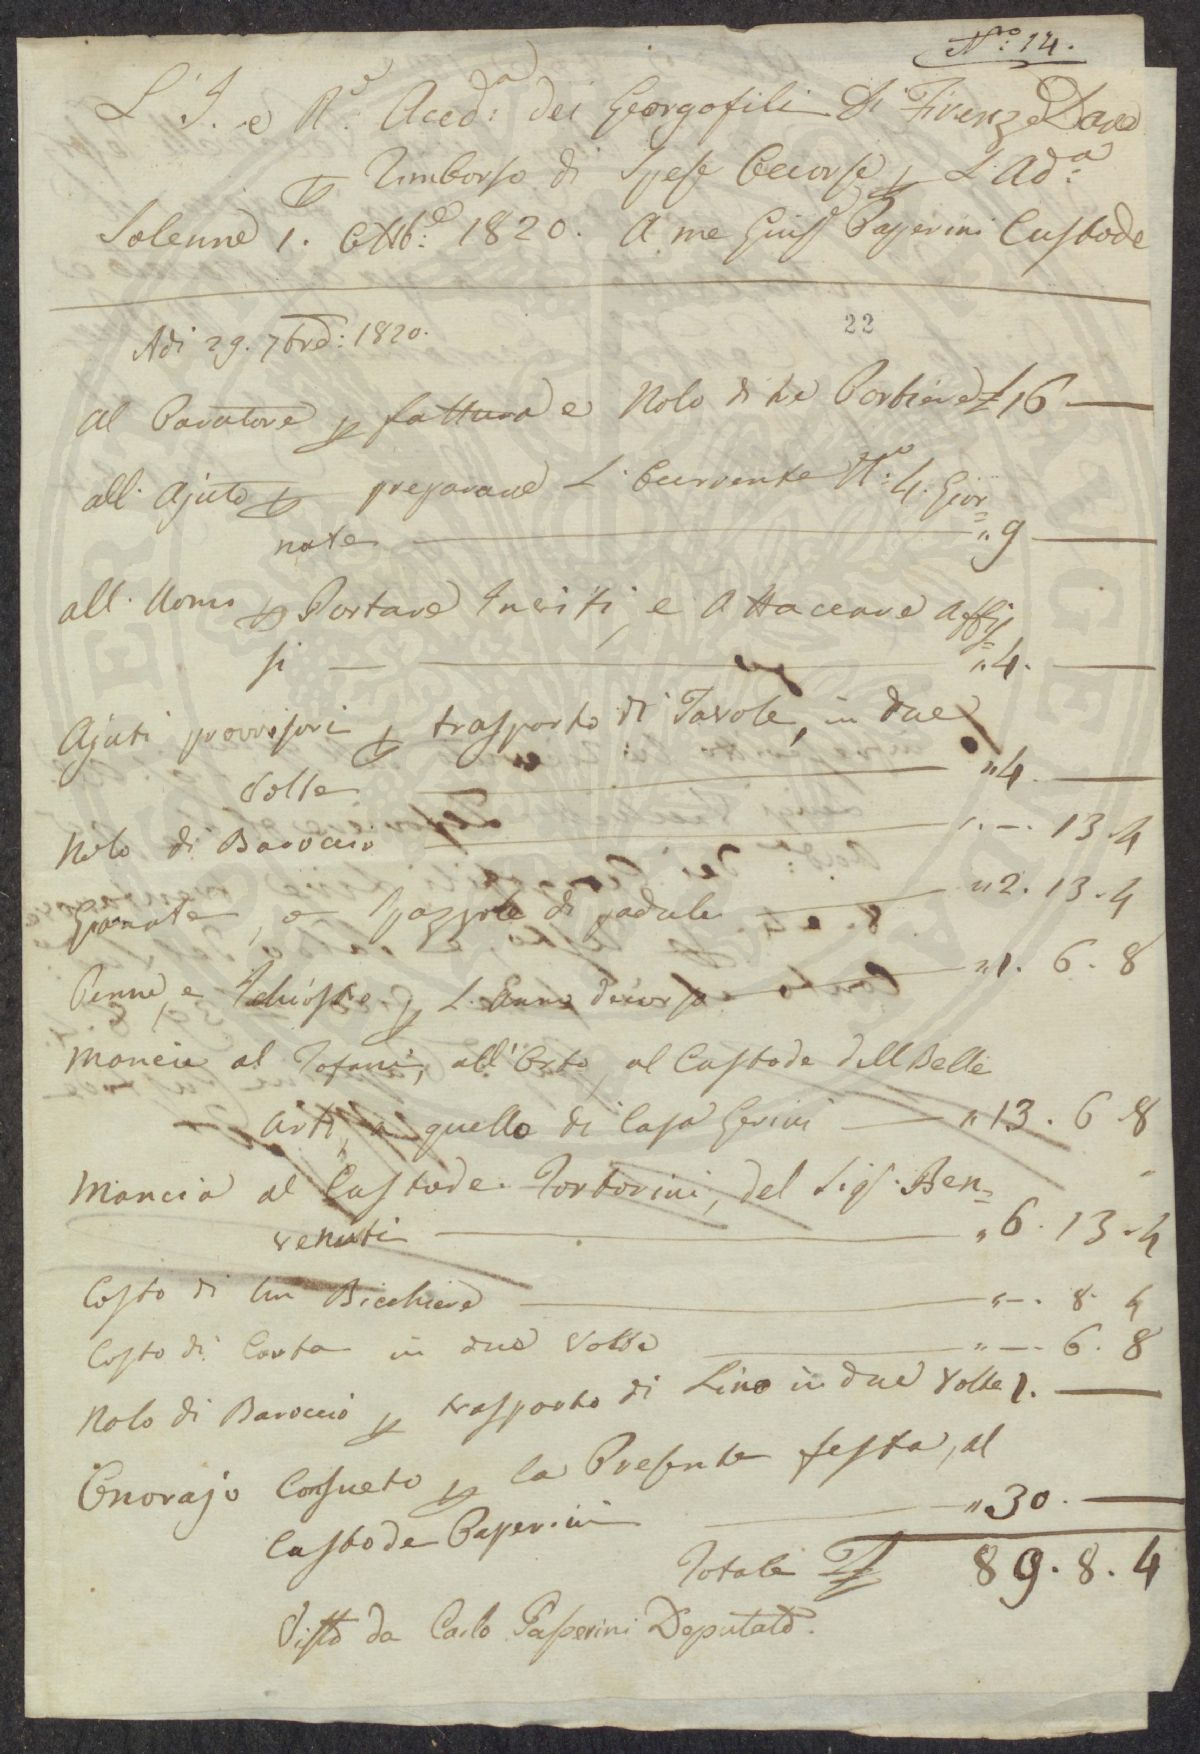 N.ro 14.
L'I. e R.e Accd.a dei Georgofili Di Firenze Dare
p Rimborso di Spese Occorse p L'Ad.a
Solenne 1. Ottb.e 1820. A me Giusp.e Paperini Custode
22
Adi 29. 7bre: 1820.
Al Paratore p fattura e Nolo di tre Portiere £ 16 —
all' Ajuto p preparare L'Occorrente N.o 4. Gior=
nate — " 9 —
all' Uomo p Portare Inviti, e Attaccare Affis=
si — " 4. —
Ajuti provvisori p trasporto di Tavole, in due
Volte — " 4. —
Nolo di Baroccio — " —. 13. 4
Granate, e Spazzole di padule — " 2. 13. 4
Penne, e Inchiostro p L'Anno decorso — " 1. 6. 8
Mancie al Tofani, all'Orto, al Custode dell Belle
Arti, a quello di Casa Gerini — " 13. 6. 8
Mancia al Custode Tortorini, del Sig.r Ben=
venuti — " 6. 13. 4
Costo di Un Bicchiere — " —. 8. 4
Costo di Carta in due Volte — " —. 6. 8
Nolo di Baroccio p trasporto di Lino in due Volte 1. —
Onorajo Consueto p la Presente festa, al
Custode Paperini — " 30. —
Totale £ 89. 8. 4
Visto da Carlo Passerini Deputato.